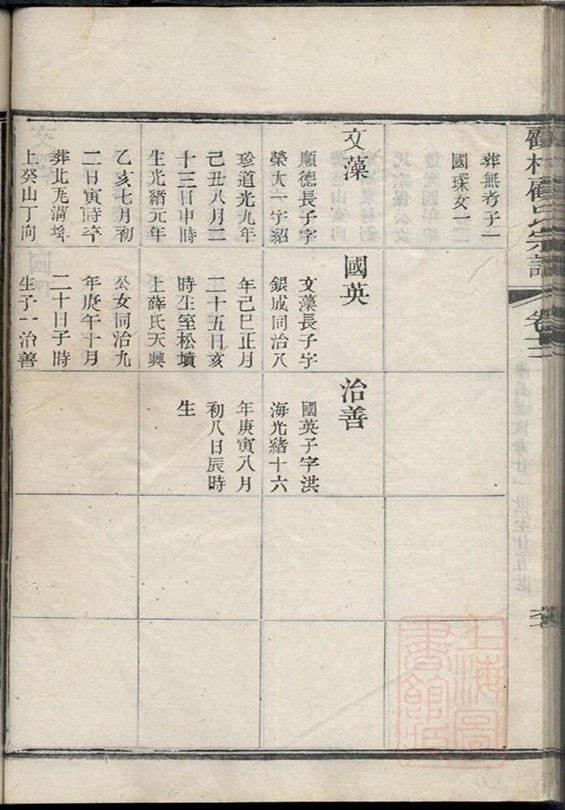 葬無考子二
國琛女一
文藻
順德長子字
榮大一字紹
珍道光九年
己丑八月二
十三日申時
生光緒元年
乙亥七月初
二日寅時卒
葬北
上癸山丁向
國英
文藻長子字
銀成同治八
年己巳正月
二十五日亥
時生室松墳
上薛氏天興
公女同治九
年庚午十月
二十日子時
生子一治善
治善
國英子字洪
海光緒十六
年庚寅八月
初八日辰時
生
卷十二
上海圖
書館藏